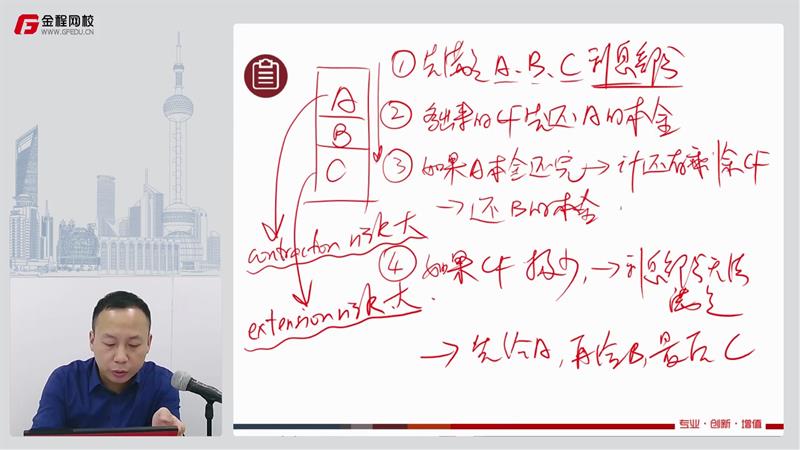 金程网校
WWW.GFEDU.CN
① 先满足 A、B、C 利息部分
A
B
C
② 多出来的 CF 先还 A 的本金
③ 如果 A 本金还完 → 还有剩余 CF
→ 还 B 的本金.
contraction 风险大
④ 如果 CF 极少, → 利息部分无法
满足
extension 风险大
→ 先给 A, 再给 B, 最后 C
专业·创新·增值